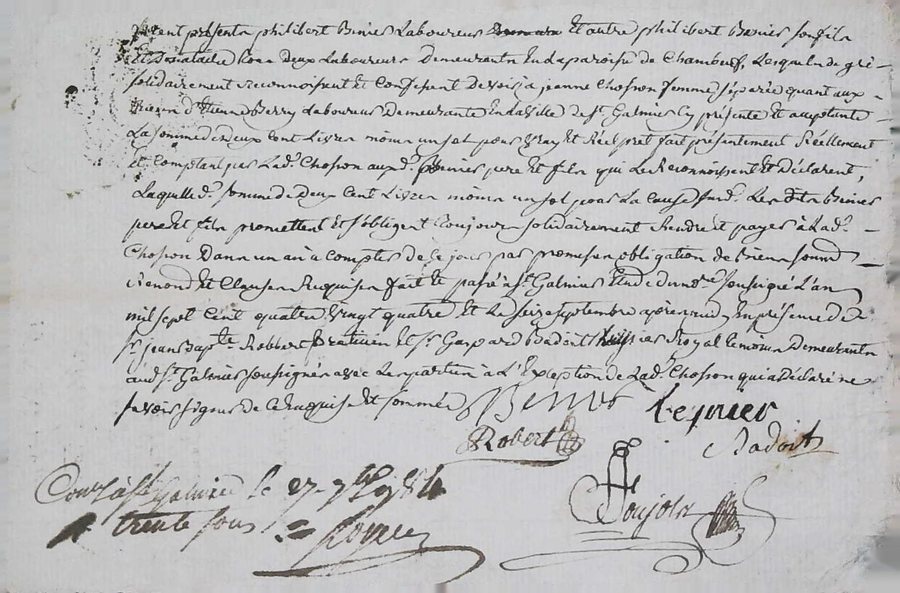 furent présents philibert Benier Laboureur Et autre philibert Benier son fils
Laboureurs Demeurants En La paroisse de Chambœuf, Lesquels de gré
solidairement reconnoissent et Confessent Devoir à jeanne Chosson femme séparée quant aux
Biens d'Etienne Berry Laboureur Demeurante En La ville de St. Galmier Cy présente Et acceptante
La somme de deux Cent Livres moins un sol pour vray Et Réel prêt fait présentement Réellement
Et Comptant par Lade. Chosson auxds. Benier pere Et fils qui Le Reconnoissent Et Déclarent,
Laquelle de. somme de deux Cent Livres moins un sol pour La Cause susde. Les dits Benier
pere Et fils promettent Et s'obligent Toujours solidairement Rendre Et payer à Lade.
Chosson Dans un an à Compter de Ce jour par promesse obligation de biens soumd.
Renond. Et Clauses Requises fait Et passé à St. Galmier Etude du nore. soussigné L'an
mil sept Cent quatre vingt quatre Et Le seize septembre après midy En présence de
sr. jean Bapte. Robbert praticien Et sr. Gaspard Badoit huissier Royal temoins Demeurants
aud. St. Galmier soussignés avec Les parties à L'Exception de Lade. Chosson qui a Déclaré ne
savoir signer de Ce Requise Et sommée
Benier
Robert
Badoit
Conté à St Galmier le 27 7bre 1784
trente sous
Poujols